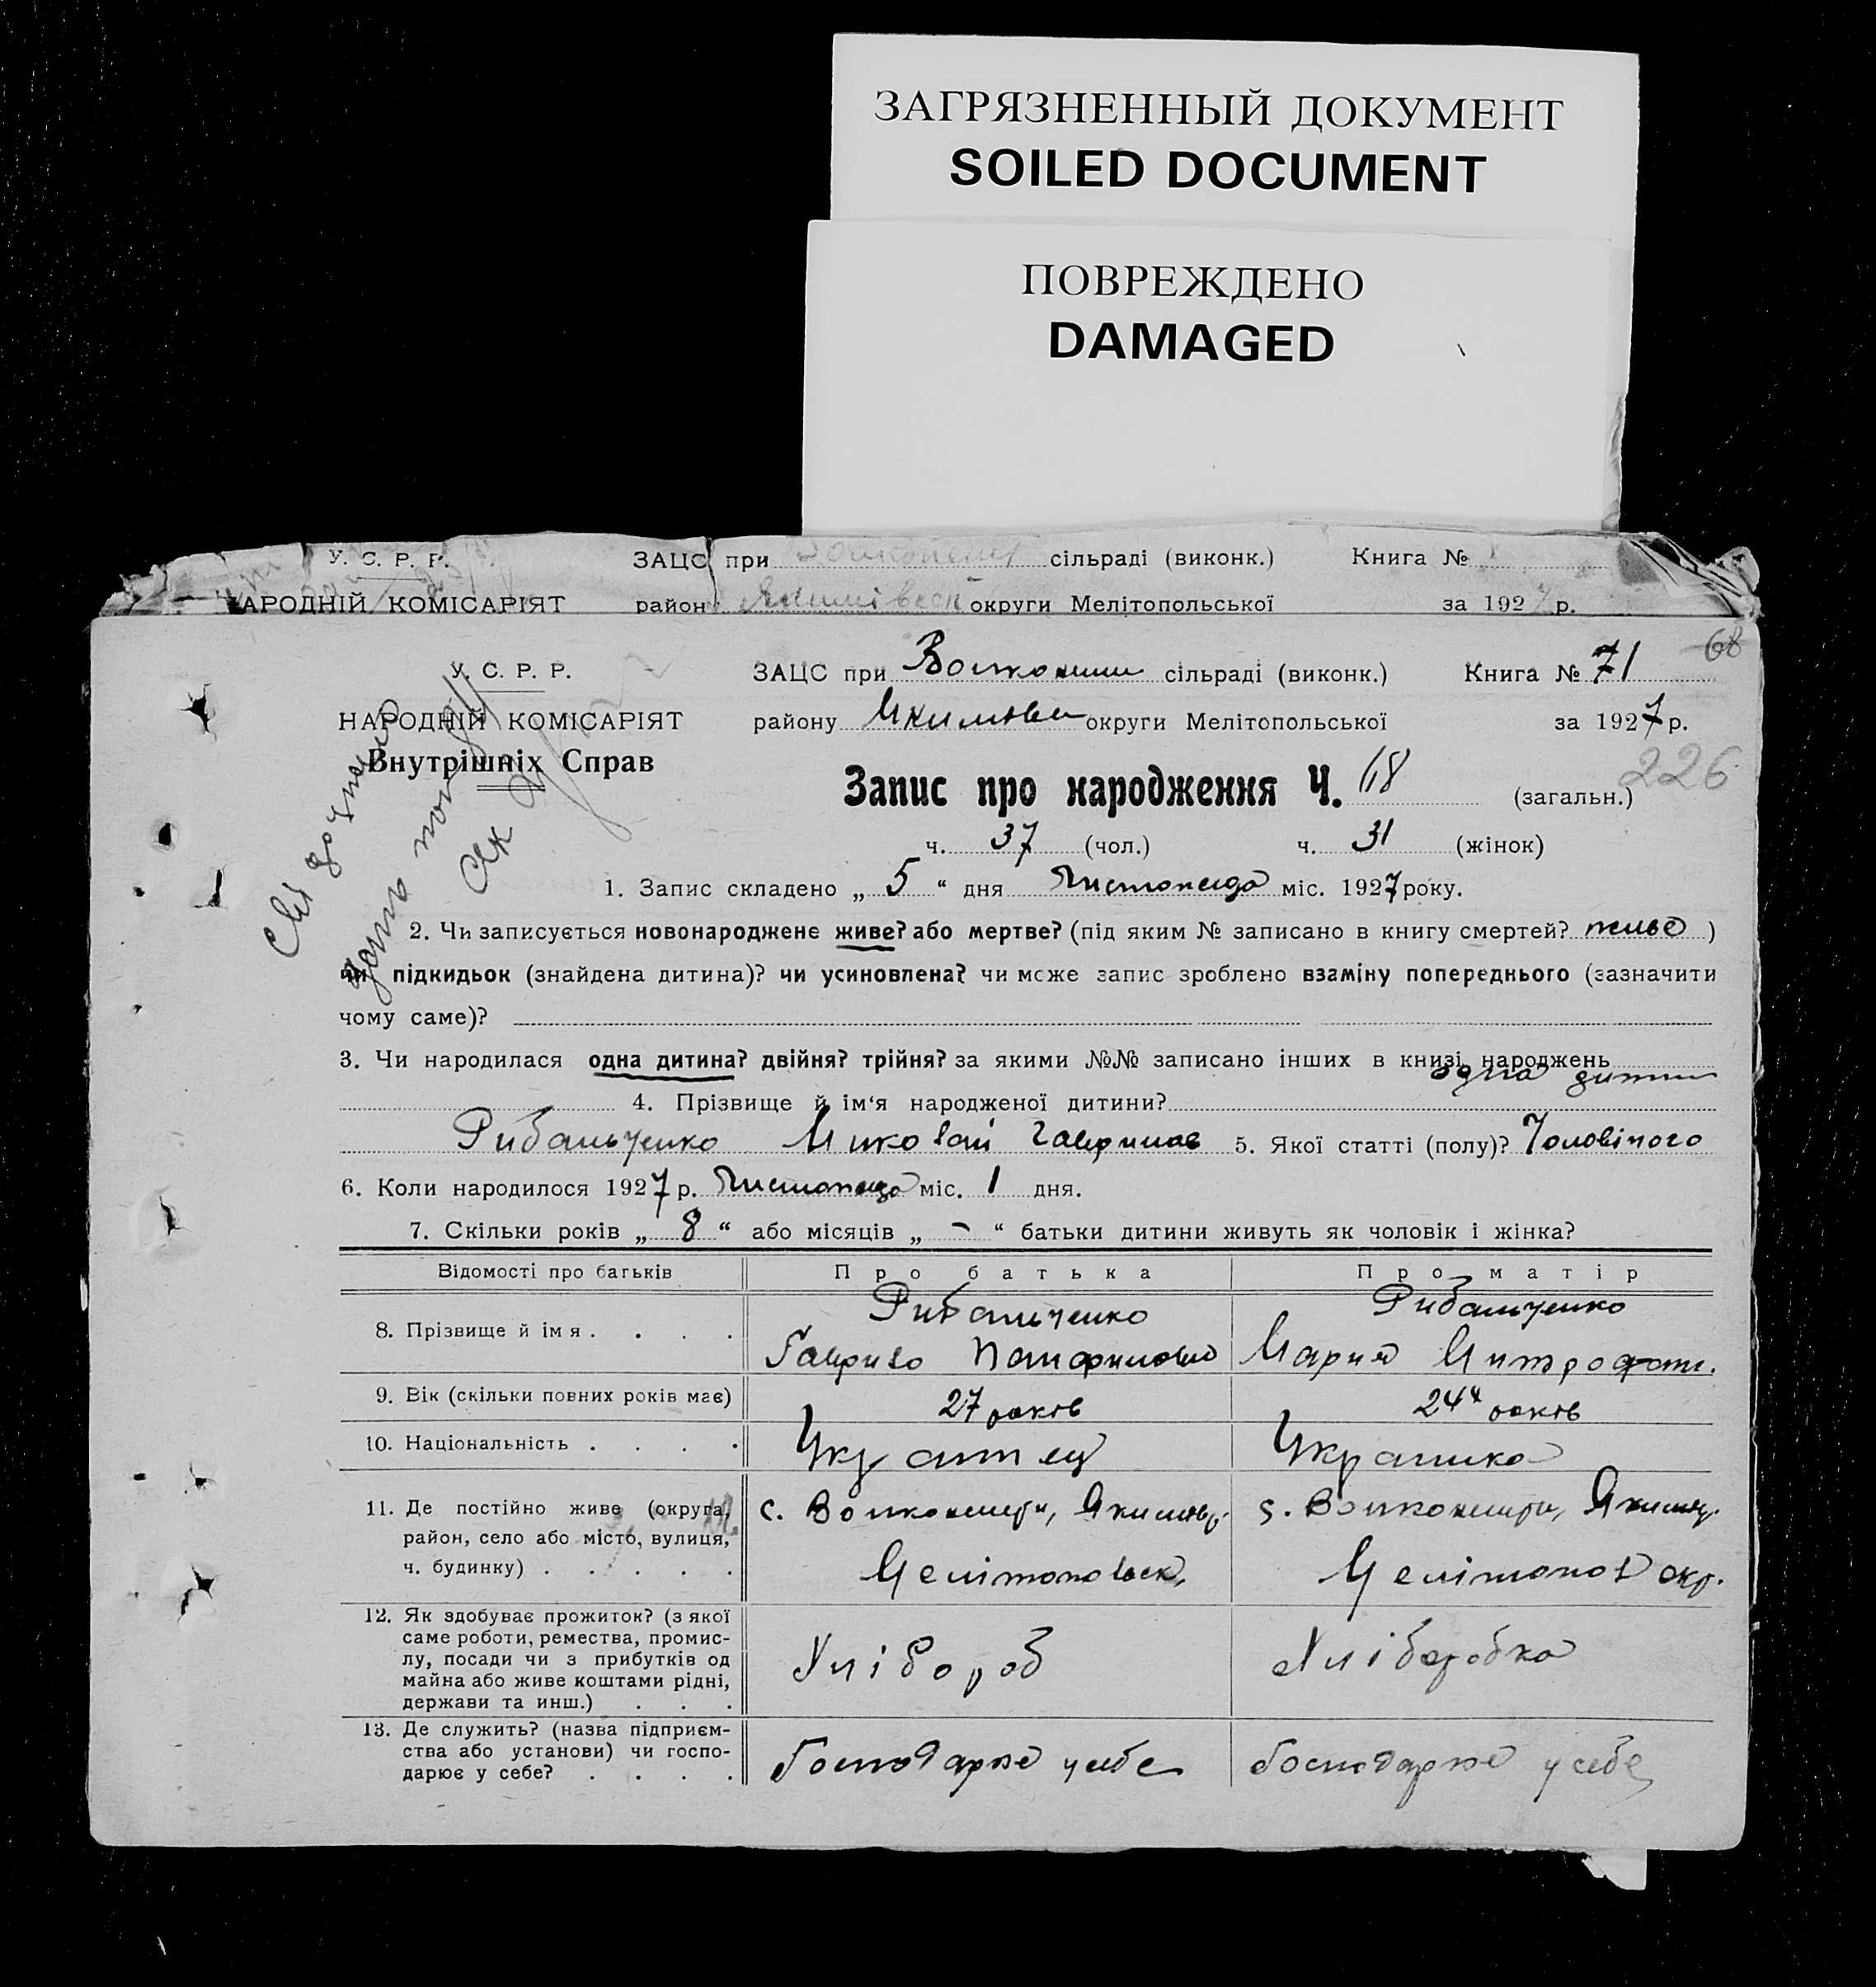 ЗАГРЯЗНЕННЫЙ ДОКУМЕНТ
SOILED DOCUMENT
ПОВРЕЖДЕНО
DAMAGED
У. С. Р. Р. ЗАЦС при сільраді (виконк.) Книга №
АРОДНІЙ КОМІСАРІЯТ район округи Мелітопольської за 1927 р.
68
У. С. Р. Р. ЗАЦС при сільраді (виконк.) Книга № 71
НАРОДНІЙ КОМІСАРІЯТ району округи Мелітопольської за 1927 р.
Внутрішніх Справ
226
Запис про народження Ч. 68 (загальн.)
ч. 37 (чол.) ч. 31 (жінок)
1. Запис складено „ 5 “ дня Листопада міс. 1927 року.
2. Чи записується новонароджене живе? або мертве? (під яким № записано в книгу смертей? живе )
чи підкидьок (знайдена дитина)? чи усиновлена? чи може запис зроблено взаміну попереднього (зазначити
чому саме)?
3. Чи народилася одна дитина? двійня? трійня? за якими №№ записано інших в книзі народжень
одна
4. Прізвище й ім‘я народженої дитини?
Рибальченко Миколай 5. Якої статті (полу)? Чоловічого
6. Коли народилося 1927 р. Листопада міс. 1 дня.
7. Скільки років „ 8 “ або місяців „ - “ батьки дитини живуть як чоловік і жінка?
Відомості про батьків Про батька Про матір
8. Прізвище й імя . . . . Рибальченко Рибальченко
Гаврило Мария Митрофан.
9. Вік (скільки повних років має) 27 років 24 років
10. Національність . . . . Українка
11. Де постійно живе (округа, с. с.
район, село або місто, вулиця,
ч. будинку) . . . . . окр.
12. Як здобуває прожиток? (з якої
саме роботи, ремества, промис-
лу, посади чи з прибутків од Хлібороб Хліборобка
майна або живе коштами рідні,
держави та инш.) . . .
13. Де служить? (назва підприєм-
ства або установи) чи госпо- Господарює у себе Господарює у себе
дарює у себе? . . . .